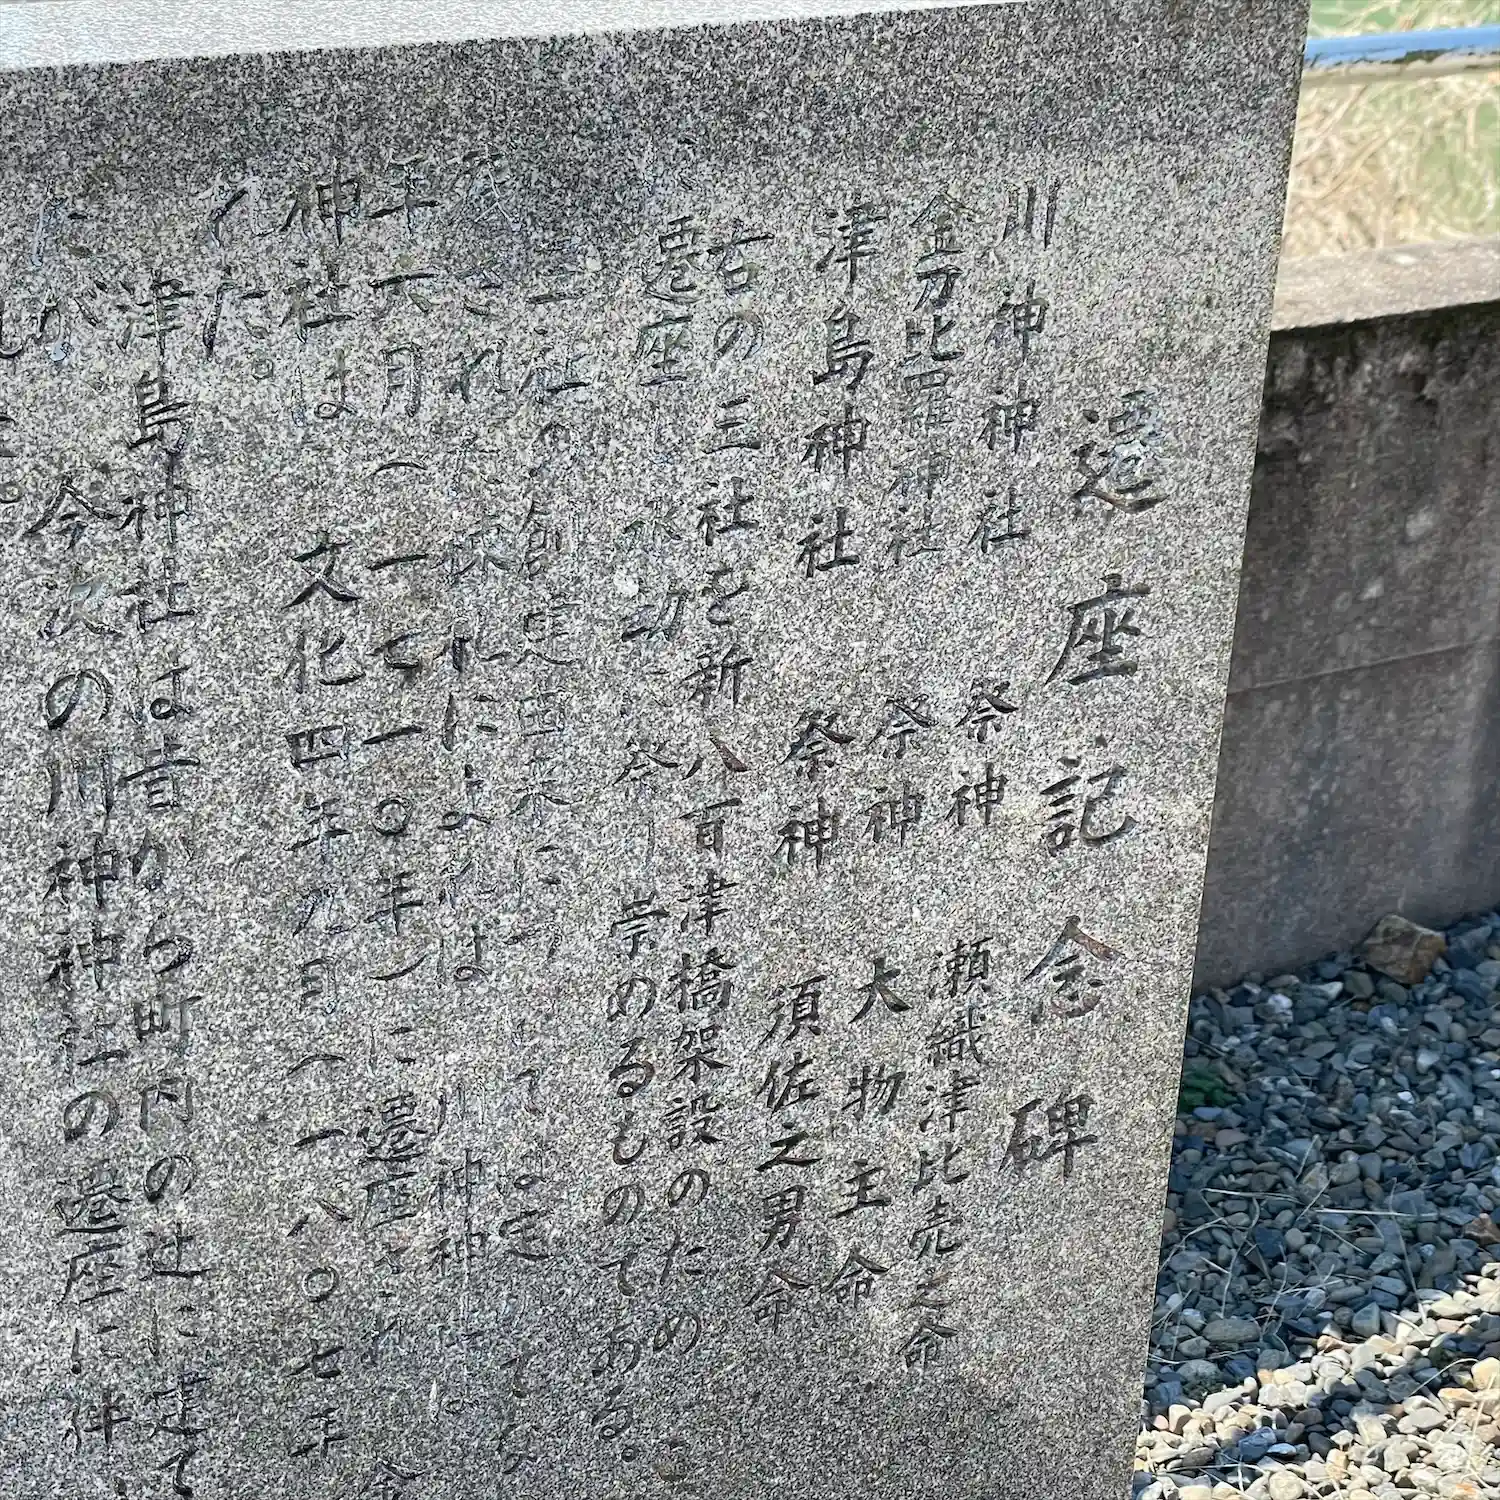 遷座記念碑
川神神社 祭神 瀬織津比売之命
金刀比羅神社 祭神 大物主命
津島神社 祭神 須佐之男命
右の三社を新八百津橋架設のため
遷座し 祭 崇めるものである。
三社の創建由来に
れ 札によれば 川神神
年六月(一七一〇年)に遷座され
神社は 文化四年九月(一八〇七年
れた。
津島神社は昔から町内の辻に建て
が 今次の川神神社の遷座に伴